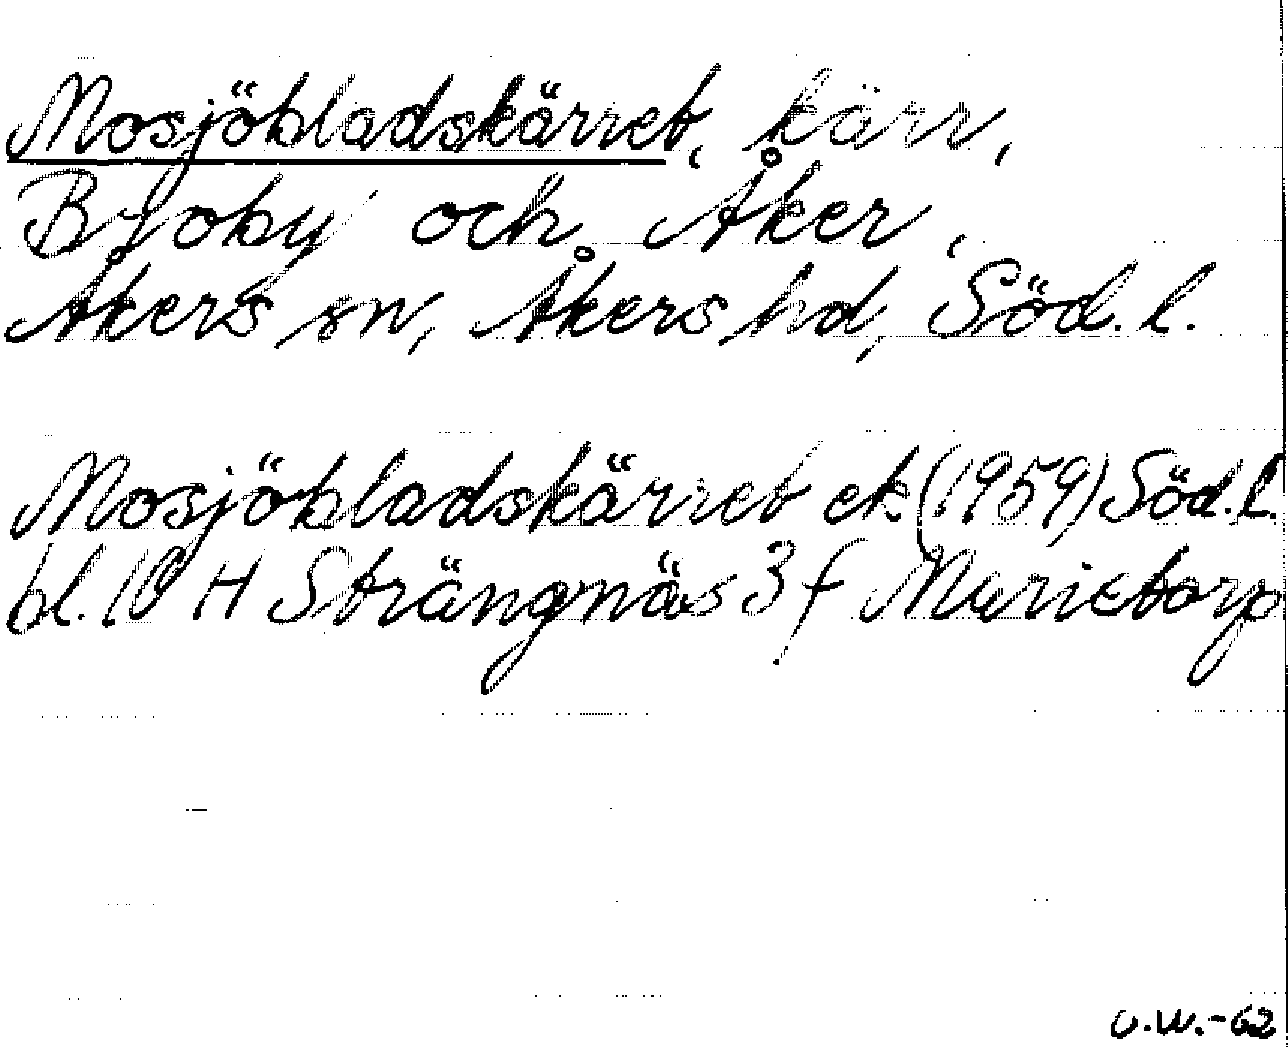 Mosjöbladskärret, kärr,
Broby och Åker,
Åkers sn, Åkers hd, Söd. l.
Mosjöbladskärret ek (1959) Söd. l.
bl. 10 H Strängnäs 3 f Marietorp
U.W.-62